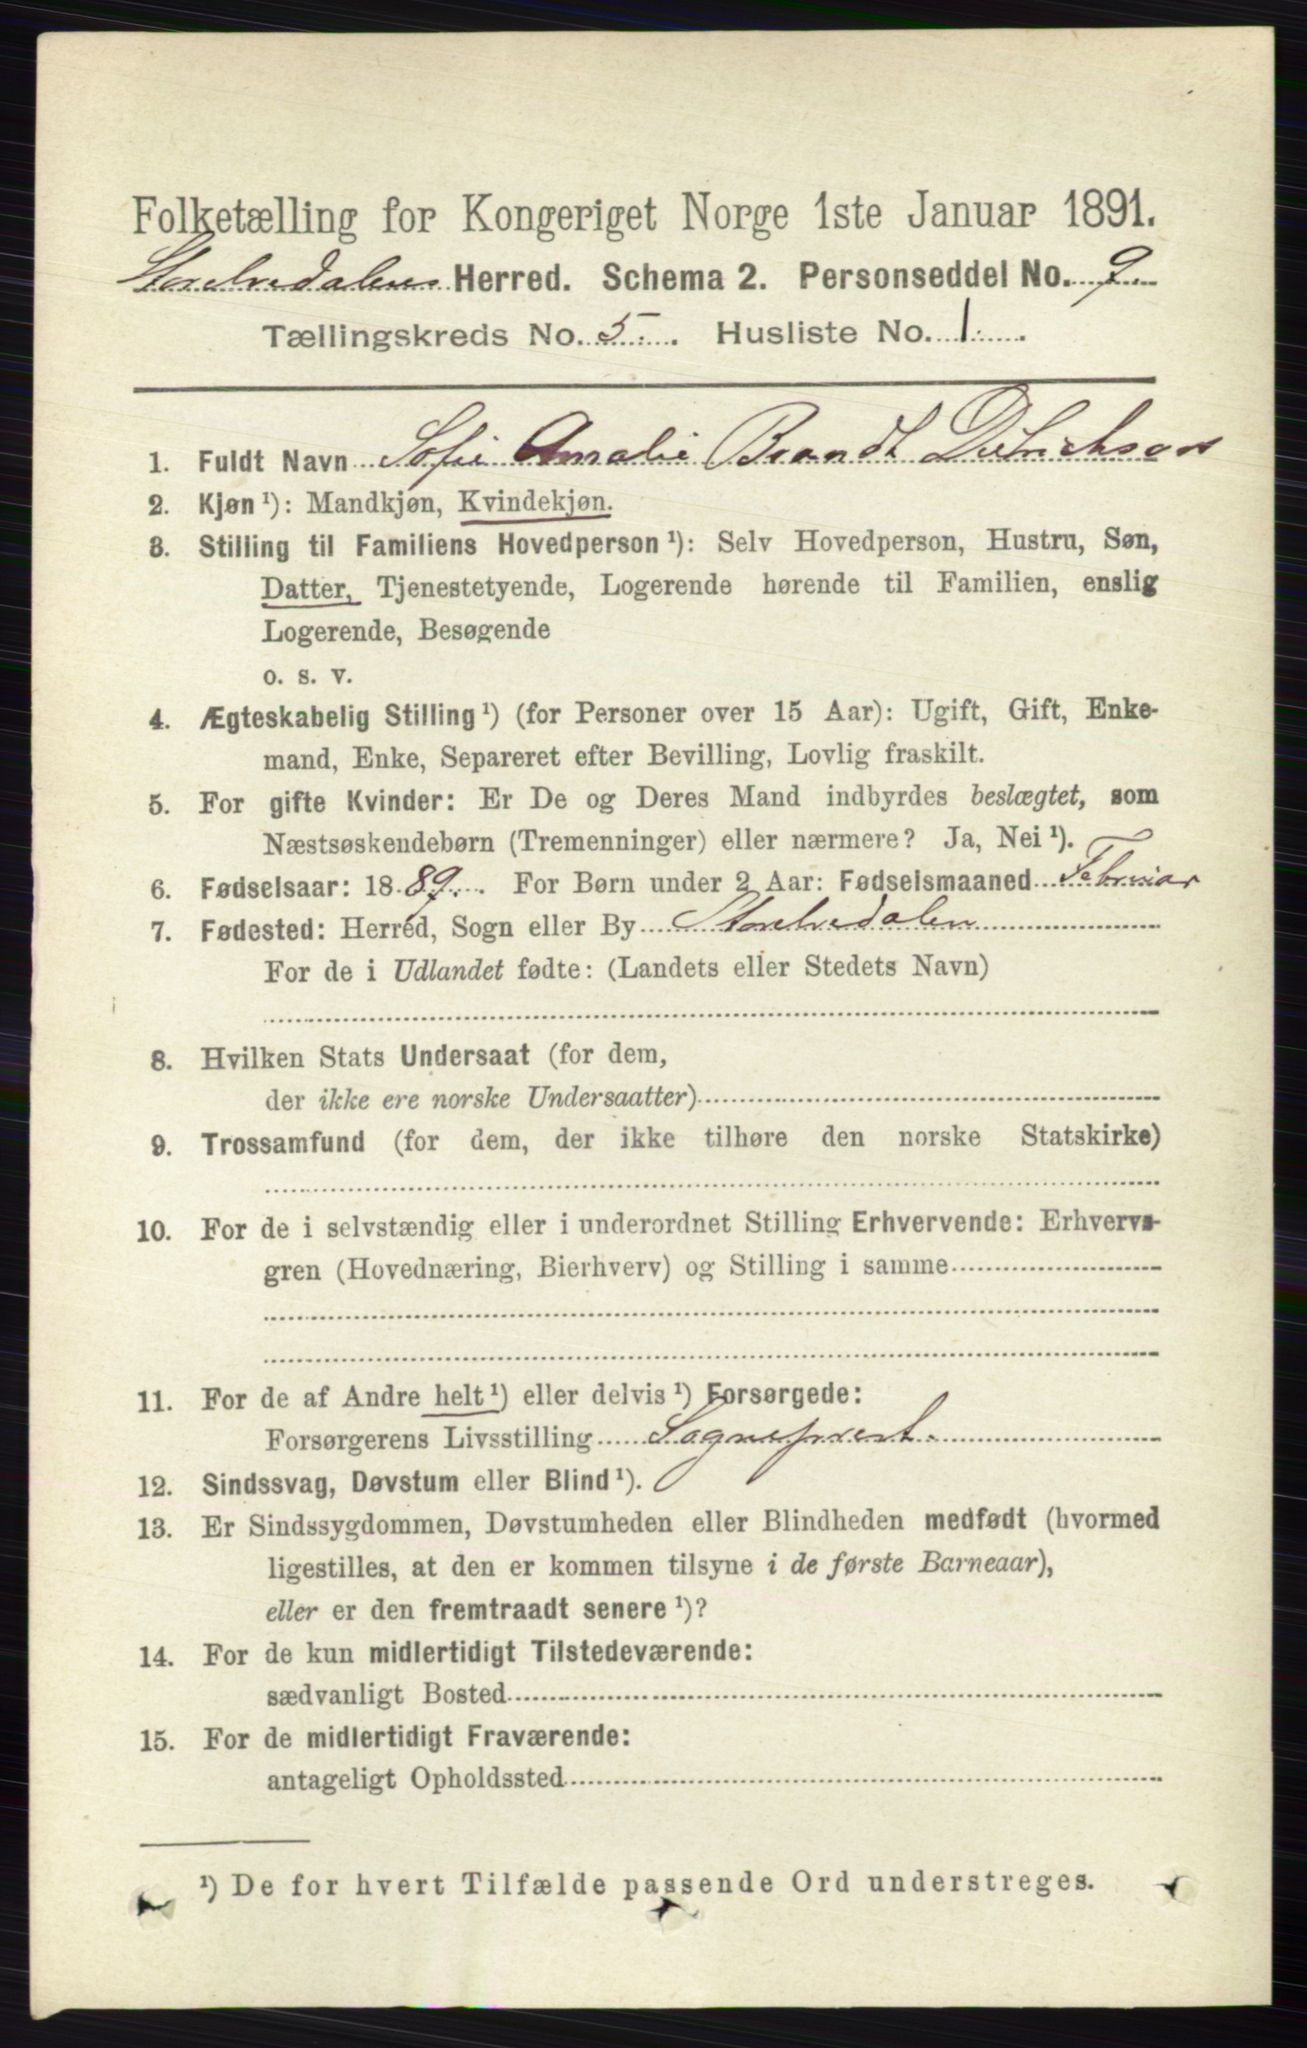 Folketælling for Kongeriget Norge 1ste Januar 1891.
Storelvedalens Herred. Schema 2. Personseddel No. 9
Tællingskreds No. 5. Husliste No. 1.
1. Fuldt Navn Sofie Amalie Brandt Ditrichson
2. Kjøn ¹): Mandkjøn, Kvindekjøn.
3. Stilling til Familiens Hovedperson ¹): Selv Hovedperson, Hustru, Søn,
Datter, Tjenestetyende, Logerende hørende til Familien, enslig
Logerende, Besøgende
o. s. v.
4. Ægteskabelig Stilling ¹) (for Personer over 15 Aar): Ugift, Gift, Enke-
mand, Enke, Separeret efter Bevilling, Lovlig fraskilt.
5. For gifte Kvinder: Er De og Deres Mand indbyrdes beslægtet, som
Næstsøskendebørn (Tremenninger) eller nærmere? Ja, Nei ¹).
6. Fødselsaar: 1889. For Børn under 2 Aar: Fødselsmaaned Februar
7. Fødested: Herred, Sogn eller By Storelvedalen
For de i Udlandet fødte: (Landets eller Stedets Navn)
8. Hvilken Stats Undersaat (for dem,
der ikke ere norske Undersaatter)
9. Trossamfund (for dem, der ikke tilhøre den norske Statskirke)
10. For de i selvstændig eller i underordnet Stilling Erhvervende: Erhvervs-
gren (Hovednæring, Bierhverv) og Stilling i samme
11. For de af Andre helt ¹) eller delvis ¹) Forsørgede:
Forsørgerens Livsstilling Sogneprest.
12. Sindssvag, Døvstum eller Blind ¹).
13. Er Sindssygdommen, Døvstumheden eller Blindheden medfødt (hvormed
ligestilles, at den er kommen tilsyne i de første Barneaar),
eller er den fremtraadt senere ¹)?
14. For de kun midlertidigt Tilstedeværende:
sædvanligt Bosted
15. For de midlertidigt Fraværende:
antageligt Opholdssted
¹) De for hvert Tilfælde passende Ord understreges.